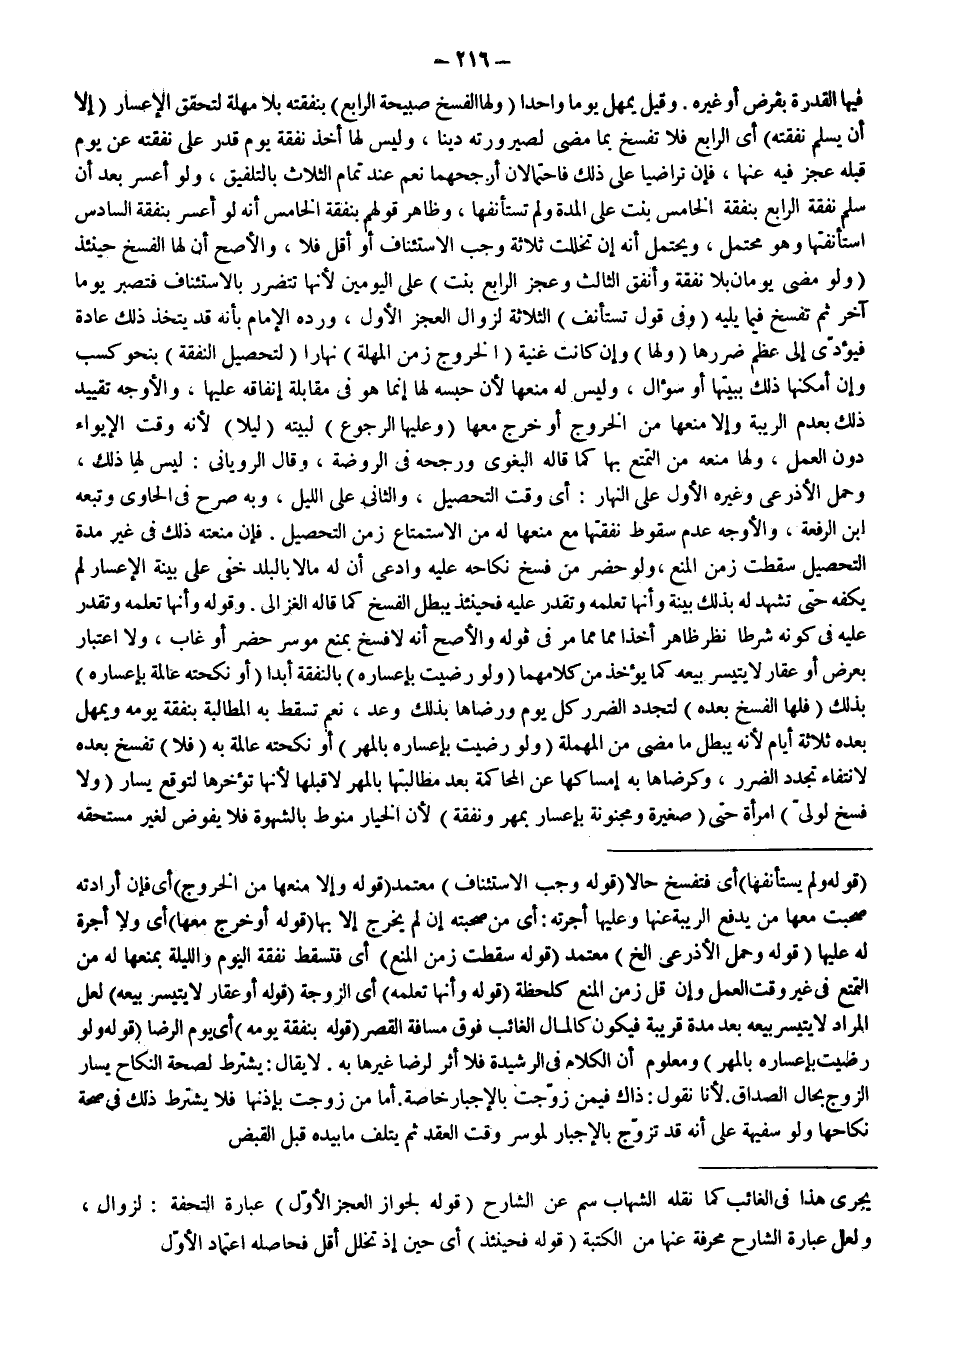 – ٢١٦ –
فيها القدرة بقرض أو غيره . وقيل يمهل يوما واحدا ( ولها الفسخ صبيحة الرابع) بنفقته بلا مهلة لتحقق الإعسار ( إلا
أن يسلم نفقته) أى الرابع فلا تفسخ بما مضى لصيرورته دينا ، وليس لها أخذ نفقة يوم قدر على نفقته عن يوم
قبله عجز فيه عنها ، فإن تراضيا على ذلك فاحتمالان أرجحهما نعم عند تمام الثلاث بالتلفيق ، ولو أعسر بعد أن
سلم نفقة الرابع بنفقة الخامس بنت على المدة ولم تستأنفها ، وظاهر قولهم بنفقة الخامس أنه لو أعسر بنفقة السادس
استأنفتها وهو محتمل ، ويحتمل أنه إن تخللت ثلاثة وجب الاستئناف أو أقل فلا ، والأصح أن لها الفسخ حينئذ
( ولو مضى يومان بلا نفقة وأنفق الثالث وعجز الرابع بنت ) على اليومين لأنها تتضرر بالاستئناف فتصبر يوما
آخر ثم تفسخ فيما يليه ( وفى قول تستأنف ) الثلاثة لزوال العجز الأول ، ورده الإمام بأنه قد يتخذ ذلك عادة
فيؤدّى إلى عظم ضررها ( ولها ) وإن كانت غنية ( الخروج زمن المهلة ) نهارا ( لتحصيل النفقة ) بنحو كسب
وإن أمكنها ذلك ببيتها أو سؤال ، وليس له منعها لأن حبسه لها إنما هو فى مقابلة إنفاقه عليها ، والأوجه تقييد
ذلك بعدم الريبة وإلا منعها من الخروج أو خرج معها ( وعليها الرجوع ) لبيته ( ليلا ) لأنه وقت الإيواء
دون العمل ، ولها منعه من التمتع بها كما قاله البغوى ورجحه فى الروضة ، وقال الرويانى : ليس لها ذلك ،
وحمل الأذرعى وغيره الأول على النهار : أى وقت التحصيل ، والثانى على الليل ، وبه صرح فى الحاوى وتبعه
ابن الرفعة ، والأوجه عدم سقوط نفقتها مع منعها له من الاستمتاع زمن التحصيل . فإن منعته ذلك فى غير مدة
التحصيل سقطت زمن المنع ، ولو حضر من فسخ نكاحه عليه وادعى أن له مالا بالبلد خفى على بينة الإعسار لم
يكفه حتى تشهد له بذلك بينة وأنها تعلمه وتقدر عليه فحينئذ يبطل الفسخ كما قاله الغزالى . وقوله وأنها تعلمه وتقدر
عليه فى كونه شرطا نظر ظاهر أخذا مما مما مر فى قوله والأصح أنه لا فسخ بمنع موسر حضر أو غاب ، ولا اعتبار
بعرض أو عقار لا يتيسر بيعه كما يؤخذ من كلامهما ( ولو رضيت بإعساره ) بالنفقة أبدا ( أو نكحته عالمة بإعساره )
بذلك ( فلها الفسخ بعده ) لتجدد الضرر كل يوم ورضاها بذلك وعد ، نعم تسقط به المطالبة بنفقة يومه ويمهل
بعده ثلاثة أيام لأنه يبطل ما مضى من المهملة ( ولو رضيت بإعساره بالمهر ) أو نكحته عالمة به ( فلا ) تفسخ بعده
لانتفاء تجدد الضرر ، وكرضاها به إمساكها عن المحاكمة بعد مطالبتها بالمهر لا قبلها لأنها تؤخرها لتوقع يسار ( ولا
فسخ لولىّ ) امرأة حتى ( صغيرة ومجنونة بإعسار بمهر ونفقة ) لأن الخيار منوط بالشهوة فلا يفوض لغير مستحقه
(قوله ولم يستأنفها) أى فتفسخ حالا (قوله وجب الاستئناف ) معتمد (قوله وإلا منعها من الخروج) أى فإن أرادته
صحبت معها من يدفع الريبة عنها وعليها أجرته : أى من صحبته إن لم يخرج إلا بها (قوله أو خرج معها) أى ولا أجرة
له عليها ( قوله وحمل الأذرعى الخ ) معتمد (قوله سقطت زمن المنع) أى فتسقط نفقة اليوم والليلة بمنعها له من
التمتع فى غير وقت العمل وإن قل زمن المنع كلحظة (قوله وأنها تعلمه) أى الزوجة (قوله أو عقار لا يتيسر بيعه) لعل
المراد لا يتيسر بيعه بعد مدة قريبة فيكون كالمال الغائب فوق مسافة القصر (قوله بنفقة يومه) أى يوم الرضا (قوله ولو
رضيت بإعساره بالمهر ) ومعلوم أن الكلام فى الرشيدة فلا أثر لرضا غيرها به . لا يقال : يشترط لصحة النكاح يسار
الزوج بحال الصداق . لأنا نقول : ذاك فيمن زوّجت بالإجبار خاصة . أما من زوجت بإذنها فلا يشترط ذلك فى صحة
نكاحها ولو سفيهة على أنه قد تزوّج بالإجبار لموسر وقت العقد ثم يتلف ما بيده قبل القبض
يجرى هذا فى الغائب كما نقله الشهاب سم عن الشارح ( قوله لجواز العجز الأوّل ) عبارة التحفة : لزوال ،
ولعل عبارة الشارح محرفة عنها من الكتبة ( قوله فحينئذ ) أى حين إذ تخلل أقل فحاصله اعتماد الأوّل